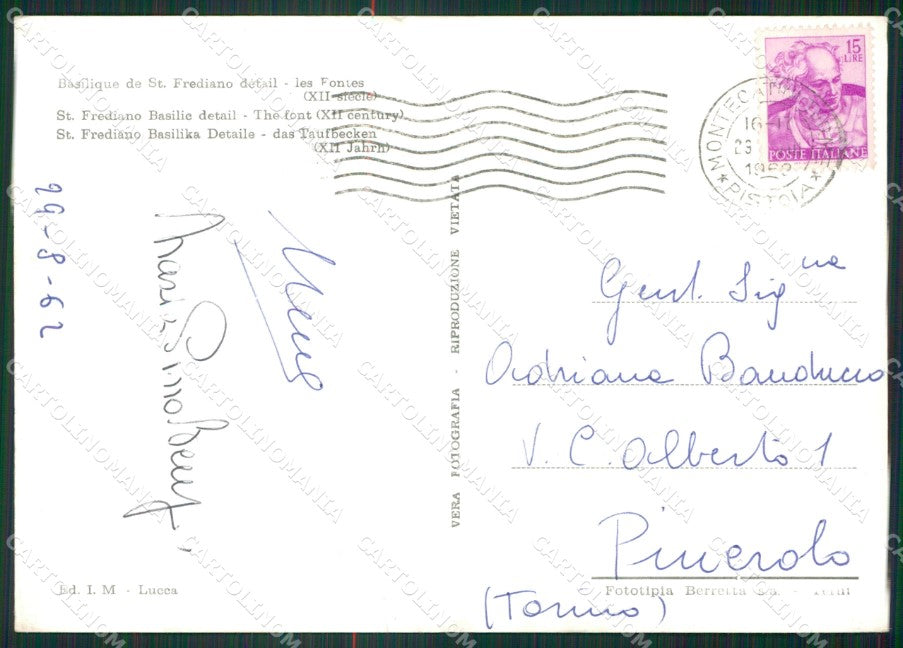 Basilique de St. Frediano détail - les Fontes
(XII siècle)
St. Frediano Basilic detail - The font (XII century)
St. Frediano Basilika Detaile - das Taufbecken
(XII Jahrh)
29-8-62
VERA FOTOGRAFIA - RIPRODUZIONE VIETATA
15
LIRE
POSTE ITALIANE
PISTOIA
Gent. Sig na
Adriana Banducco
V. C. Alberto 1
Pinerolo
(Torino)
Ed. I. M - Lucca
Fototipia Berretta - Terni
CARTOLINOMANIA